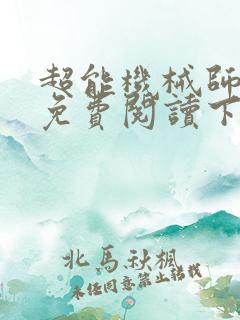 超能機械師
免費閱讀下
北馬秋楓
未经同意禁止转载